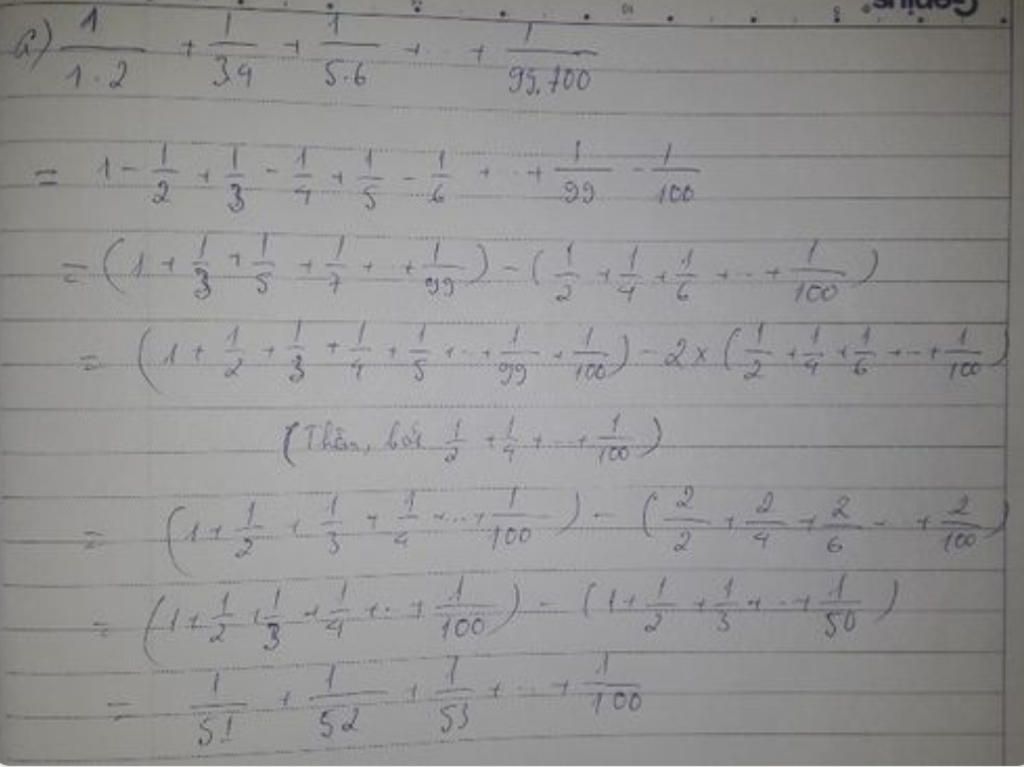 Genius
a) 1/1.2 + 1/3.4 + 1/5.6 + .. + 1/99.100
= 1 - 1/2 + 1/3 - 1/4 + 1/5 - 1/6 + .. + 1/99 - 1/100
= (1 + 1/3 + 1/5 + 1/7 + .. + 1/99) - (1/2 + 1/4 + 1/6 + .. + 1/100)
= (1 + 1/2 + 1/3 + 1/4 + 1/5 + .. + 1/99 + 1/100) - 2 × (1/2 + 1/4 + 1/6 + .. + 1/100)
(Thêm, bớt 1/2 + 1/4 + .. + 1/100)
= (1 + 1/2 + 1/3 + 1/4 + ... + 1/100) - (2/2 + 2/4 + 2/6 - .. + 2/100)
= (1 + 1/2 + 1/3 + 1/4 + .. + 1/100) - (1 + 1/2 + 1/3 + .. + 1/50)
= 1/51 + 1/52 + 1/53 + .. + 1/100